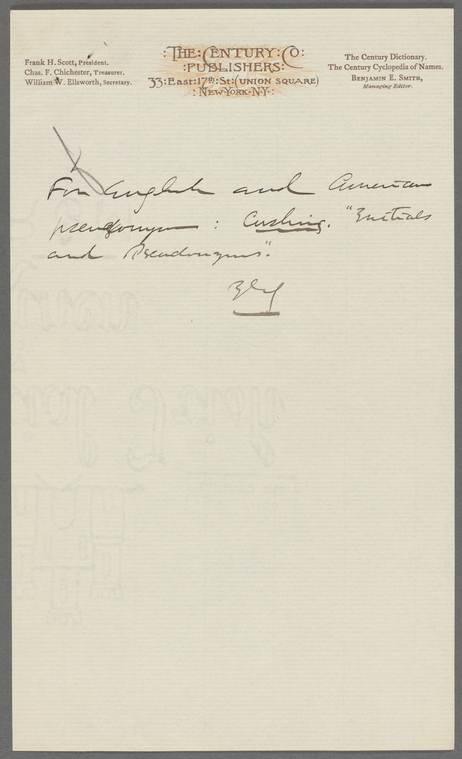 Frank H. Scott, President.
Chas. F. Chichester, Treasurer.
William W. Ellsworth, Secretary.
:The:Century:Co:
:PUBLISHERS:
33:East:17th:St:(UNION SQUARE)
:New·York·N·Y·:
The Century Dictionary.
The Century Cyclopedia of Names.
Benjamin E. Smith,
Managing Editor.
For English and American
pseudonyms : Cushing. "Initials
and Pseudonyms".